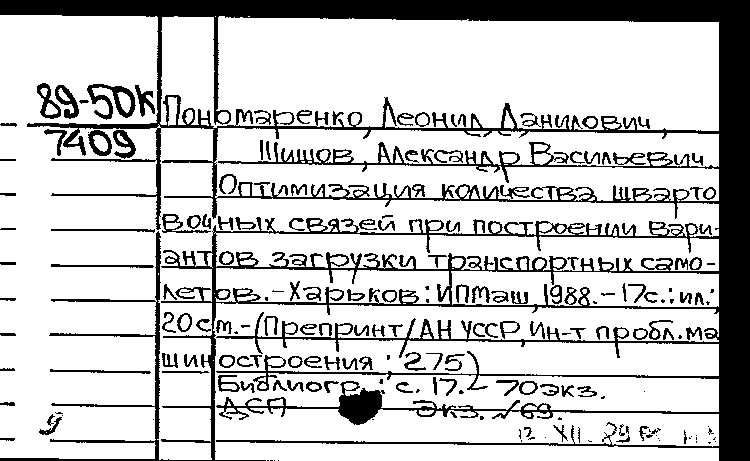 89-50К
7409
Пономаренко, Леонид Данилович,
Шишов, Александр Васильевич.
Оптимизация количества шварто
вочных связей при построении вари-
антов загрузки транспортных само-
летов.-Харьков: ИПМаш, 1988.-17с.: ил.;
20см.-(Препринт/АН УССР, Ин-т пробл.ма
шиностроения; 275)
Библиогр.: с. 17.- 70экз.
ДСП экз. №69.
9
12 XII. 89